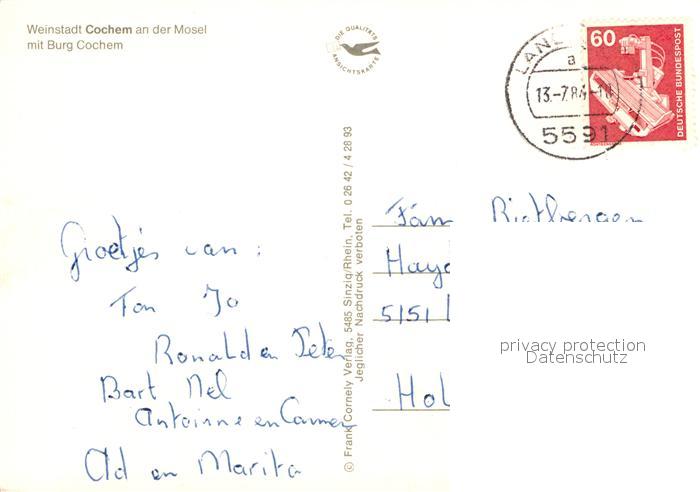 Weinstadt Cochem an der Mosel
mit Burg Cochem
DIE QUALITÄTS
ANSICHTSKARTE
60
DEUTSCHE BUNDESPOST
a
13.-7.84.-18
5591
© Frank Cornely Verlag, 5485 Sinzig/Rhein, Tel. 0 26 42 / 4 28 93
Jeglicher Nachdruck verboten
Groetjes van :
Ton Jo
Ronald en Peter
Bart Nel
Antoinne en Carmen
Ad en Marita
Fam Rietbergen
Hayd
5151
Hol
privacy protection
Datenschutz